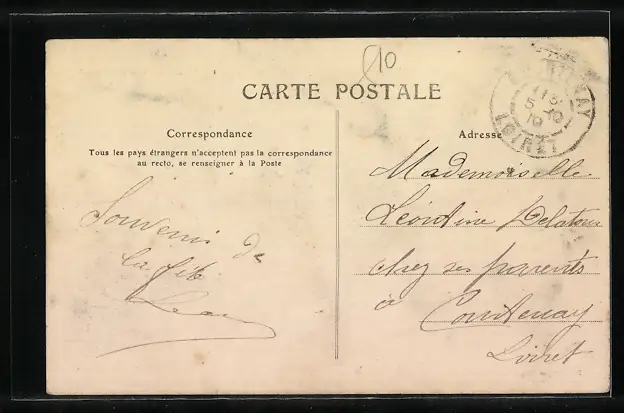 10
CARTE POSTALE
Correspondance
Tous les pays étrangers n'acceptent pas la correspondance
au recto, se renseigner à la Poste
Souvenir de
la fête
Adresse
Mademoiselle
Léontine Delatour
chez ses parents
à Courtenay
Loiret
LOIRET